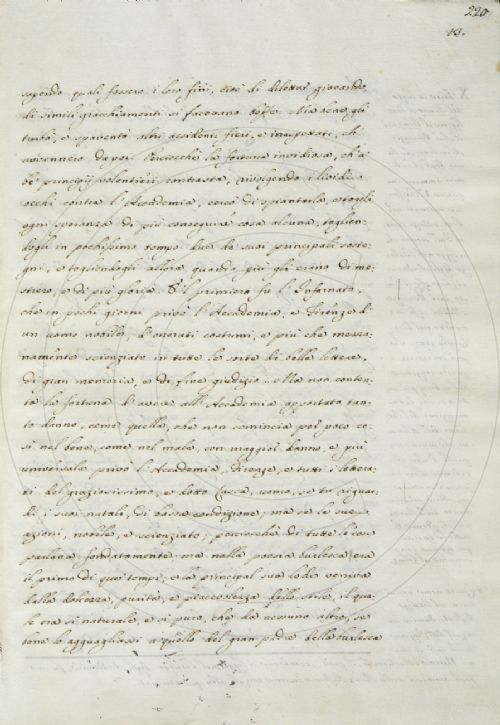 220.
13.
sapendo quali fossero i loro fini, cioè di dilettar giocando,
di simili gracchiamenti si facevano beffe. Ma bene gli
turbò, e spaventò altri accidenti fieri, e inasperati, ch'
avvennero dapoi. Perciochè la fortuna invidiosa, ch'a'
be' principij volentieri contrasta, rivolgendo i lividi
occhi contra l'Accademia, cercò di spiantarla, e torgli
ogni speranza di più conseguir cosa alcuna, toglien-
dogli in pochissimo tempo due de' suoi principali soste-
gni, e togliendogli allora quando più gli erano di me-
stiero, e di più gloria. E 'l primiero fu l'Infarinato,
che in pochi giorni privò l'Accademia, e Firenze d'
un uomo nobile, d'onorati costumi, e più che mezza-
namente scienziato in tutte le sorte di belle lettere,
di gran memoria, e di fine giudizio. Ma non conten-
ta la fortuna d'avere all'Accademia apportato tan-
to danno, come quella, che non comincia per poco co-
sì nel bene, come nel male, con maggior danno, e più
universale privò l'Accademia, Firenze, e tutti i lettera-
ti del graziosissimo, e dotto uomo, se tu riguar-
di i suoi natali, di bassa condizione, ma se le sue
azioni, nobile, e scienziato; perciocchè di tutte le cose
parlava fondatamente ma nella poesia burlesca era
il primo di que' tempi, e la principal sua lode veniva
dalla dolcezza, purità, e piacevolezza dello stile, il qua-
le era sì naturale, e sì puro, che da nessuno altro, se
bene lo agguagliassi a quello del gran padre della burlesca